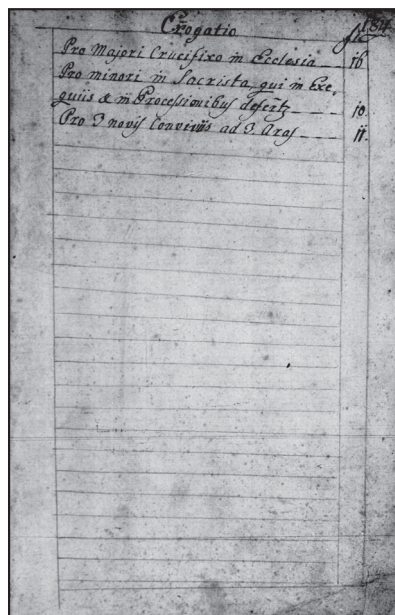 Erogatio 184
fl
Pro Majori Crucifixo in Ecclesia 16
Pro minori in Sacristia, qui in Exe,
quiis & in Processionibus defertz 10.
Pro 3 novis Conviviis ad 3. Aras 11.